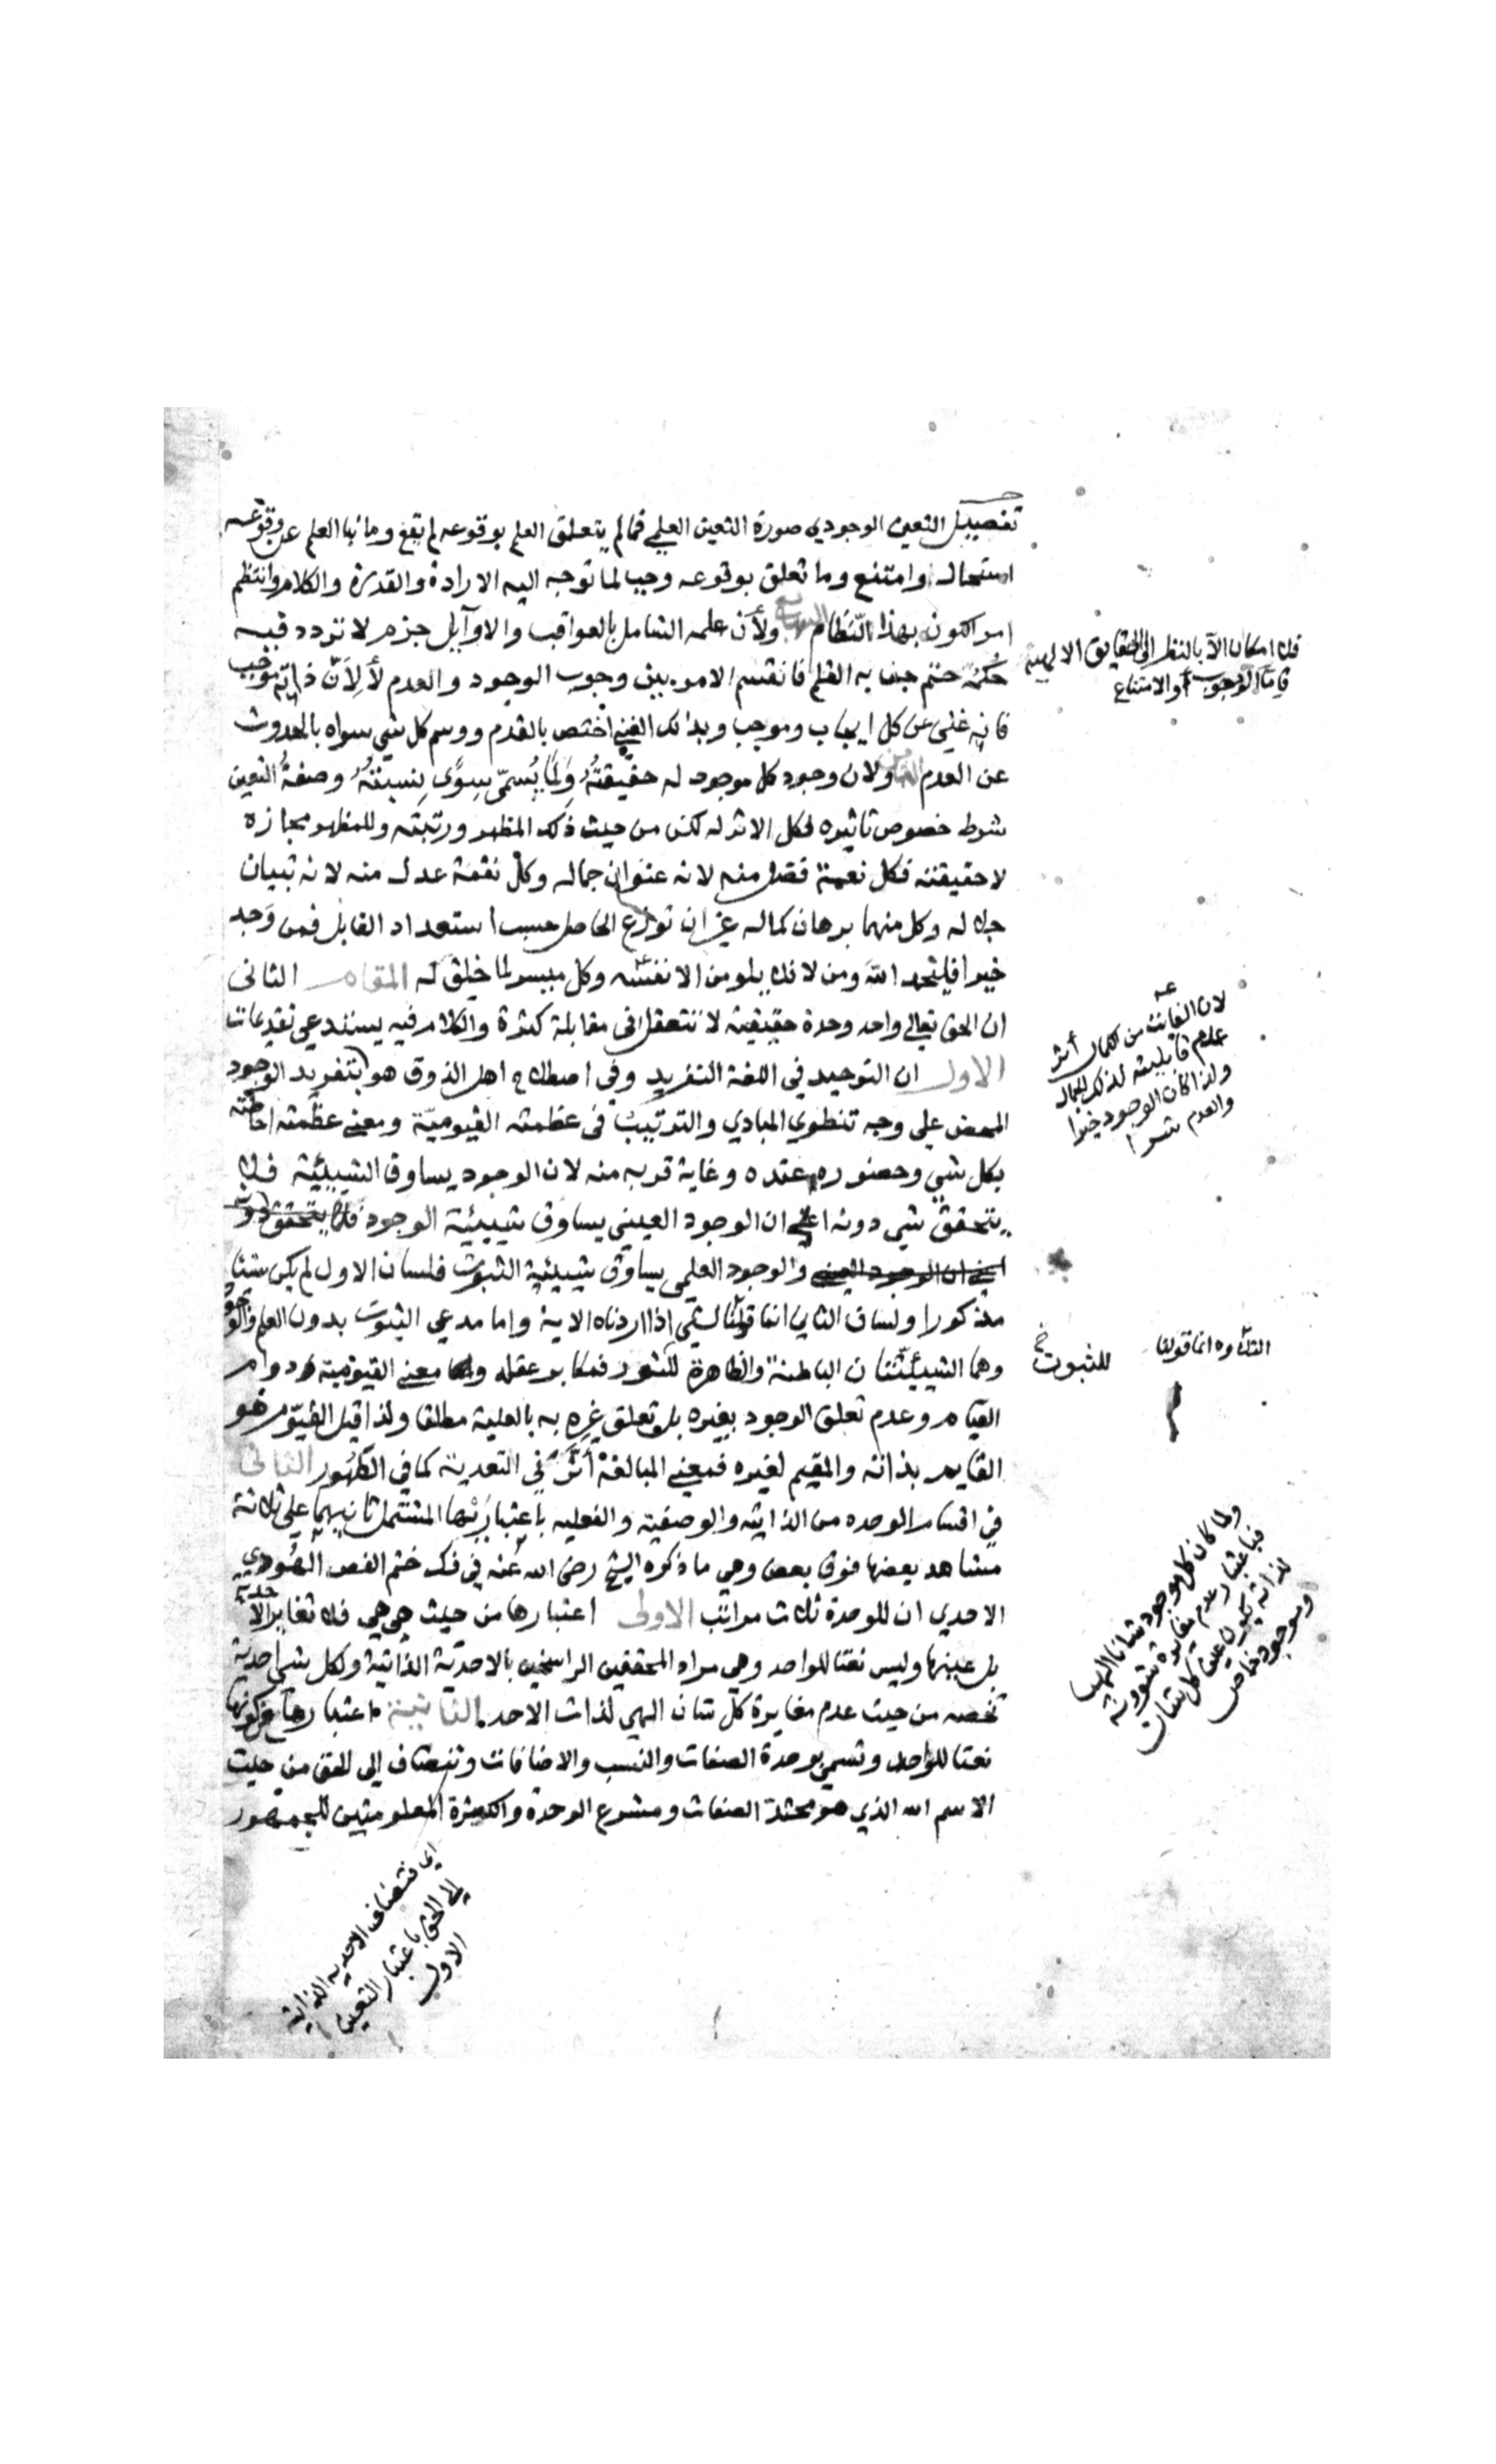 تفصيل التعين الوجودي صورة التعين العلمي فما لم يتعلق العلم بوقوعه لم يقع وما نبا العلم عن وقوعه
استحال وامتنع وما تعلق بوقوعه وجب لما توجه اليه الارادة والقدرة والكلام وانتظم
امر الكون بهذا النّظام السابع ولأن علمه الشامل بالعواقب والاوآيل جزم لا تردد فيه
حكمه حتم جف به القلم فانقسم الامر بين وجوب الوجود والعدم لأ لِأَنّ ذاته موجب
فانه غني عن كل ايجاب وموجب وبذلك الغني اختص بالقدم ووسم كل شي سواه بالحدوث
عن العدم الثامن ولان وجود كل موجود له حقيقتُهُ ولما يُسمّى سِوًى نِسبتُهُ وصفةُ التعين
شرط خصوص تاثيره فكل الاثر له لكن من حيث ذلك المظهر ورتبته وللمظهر مجازه
لا حقيقته فكل نعمة فضل منه لانه عنوان جماله وكل نقمة عدل منه لانه تبيان
جلاله وكل منهما برهان كماله غير ان توزع الحاصل حسب استعداد القابل فمن وَجد
خيرا فليحمد اللّه ومن لا فلا يلومن الا نفسه وكل ميسر لما خلق له المقام الثاني
ان الحق تعالى واحد وحدة حقيقية لا تتعقل في مقابلة كثرة والكلام فيه يستدعي تقديمات
الاول ان التوحيد في اللغة التفريد وفي اصطلاح اهل الذوق هو تفريد الوجود
المحض على وجه تنطوي المبادي والترتيب في عظمته القيوميّة ومعنى عظمته احاطته
بكل شي وحضوره عنده وغاية قربه منه لان الوجود يساوق الشيئية فلا
يتحقق شي دونه اعني ان الوجود العيني يساوق شيئية الوجود فلا يتحقق دونه
اعني ان الوجود العيني والوجود العلمي يساوق شيئية الثبوت فلسان الاول لم يكن شيئا
مذكورا ولسان الثاني انما قولنا لشي اذا اردناه الاية واما مدعي الثبوت بدون العلم والوجود
وهما الشيئيّتان الباطنة والظاهرة للشور فمكابر عقله واما معنى القيومية دوام
القيام وعدم تعلق الوجود بغيره بل تعلق غيره به بالعلية مطلقا ولذا قيل القيّوم هو
القايم بذاته والمقيم لغيره فمعنى المبالغة أثَّر في التعدية كما في الطَّهُور الثاني
في اقسام الوحده من الذاتية والوصفيه والفعليه باعتبارَيْها المشتمل ثانيهما على ثلاثة
مشاهد بعضها فوق بعض وهي ما ذكره الشيخ رضى الله عنه في فك ختم الفص الهُودي
الاحدي ان للوحدة ثلاث مراتب الاولى اعتبارها من حيث هي هي فلا تغاير الاحدية
بل عينها وليس نعتا للواحد وهي مراد المحققين الراسخين بالاحديّة الذاتية ولكل شي احدية
تخصه من حيث عدم مغايرة كلّ شان الهي لذات الاحد الثانية اعتبارها من كونها
نعتا للواحد وتسمى بوحدة الصفات والنسب والاضافات وتنضاف الى الحق من حيث
الاسم الله الذي هو محتد الصفات ومشرع الوحدة والكثرة المعلومتين للجمهور
فلا امكان الا بالنظر الى الحقايق الالهية
فاما الوجوب أو الامتناع
لان الفائت من الكمال أثر
عدم قابليته لذلك الكمال
ولذا كان الوجود خيرا
والعدم شرا
التلاوة انما قولنا
للثبوت خ
ولما كان كل موجود شانا الهيا
فباعتبار عدم مغايرة شوونه
لذاته يكون عين كل شان
وموجود خاص
اي فتضاف الاحدية الذاتية
الى الحق باعتبار التعين
الاول